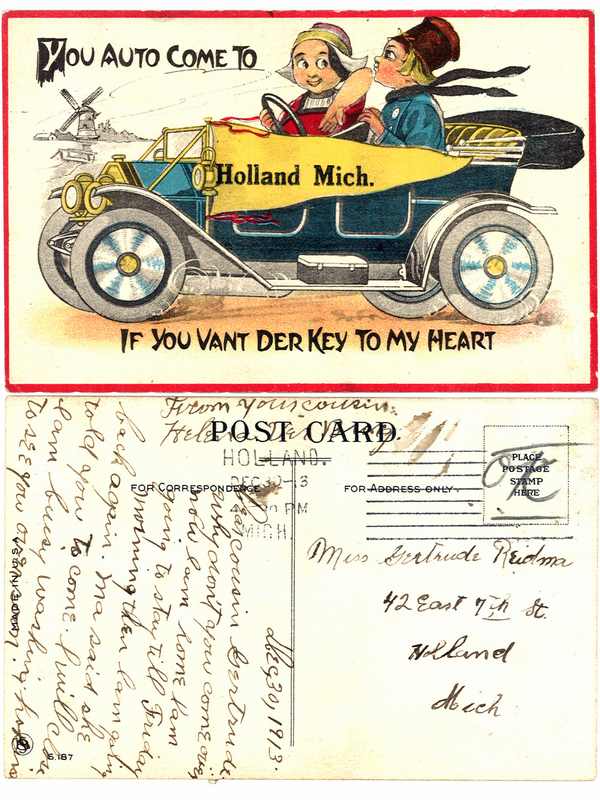 YOU AUTO COME TO
Holland Mich.
IF YOU VANT DER KEY TO MY HEART
From your cousin
POST CARD
HOLLAND.
DEC 30 -3
4 PM
MICH.
FOR CORRESPONDENCE
FOR ADDRESS ONLY
PLACE
POSTAGE
STAMP
HERE
OK
Miss Gertrude Reidma
42 East 7th St.
Holland
Mich
Dec 30, 1913.
cousin Gertrude
why don't you come over
now I am home I am
going to stay till Friday
morning then I am going
back again. Ma said she
told you to come I will close
I am busy washing
to see you
MADE IN U.S.A.
S.187